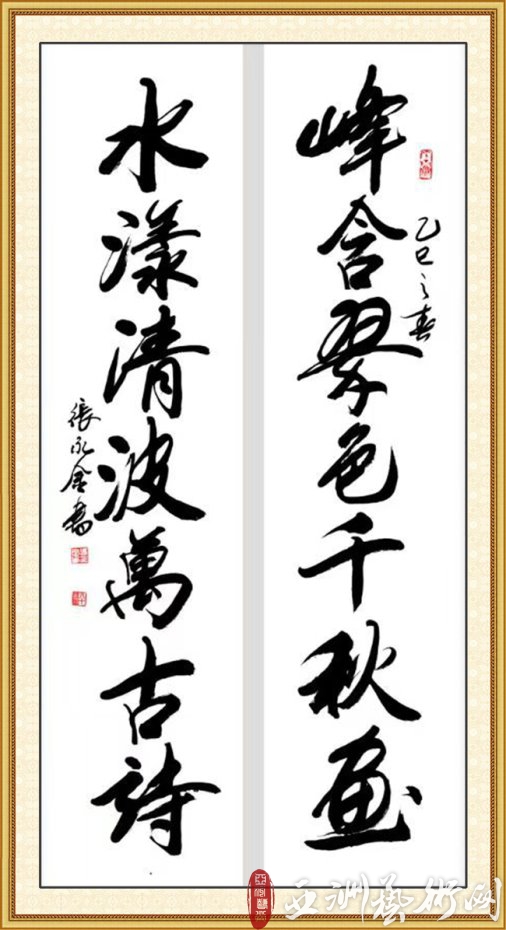 峰含翠色千秋画
乙巳之春
水漾清波萬古詩
張永金書
亚洲藝术网